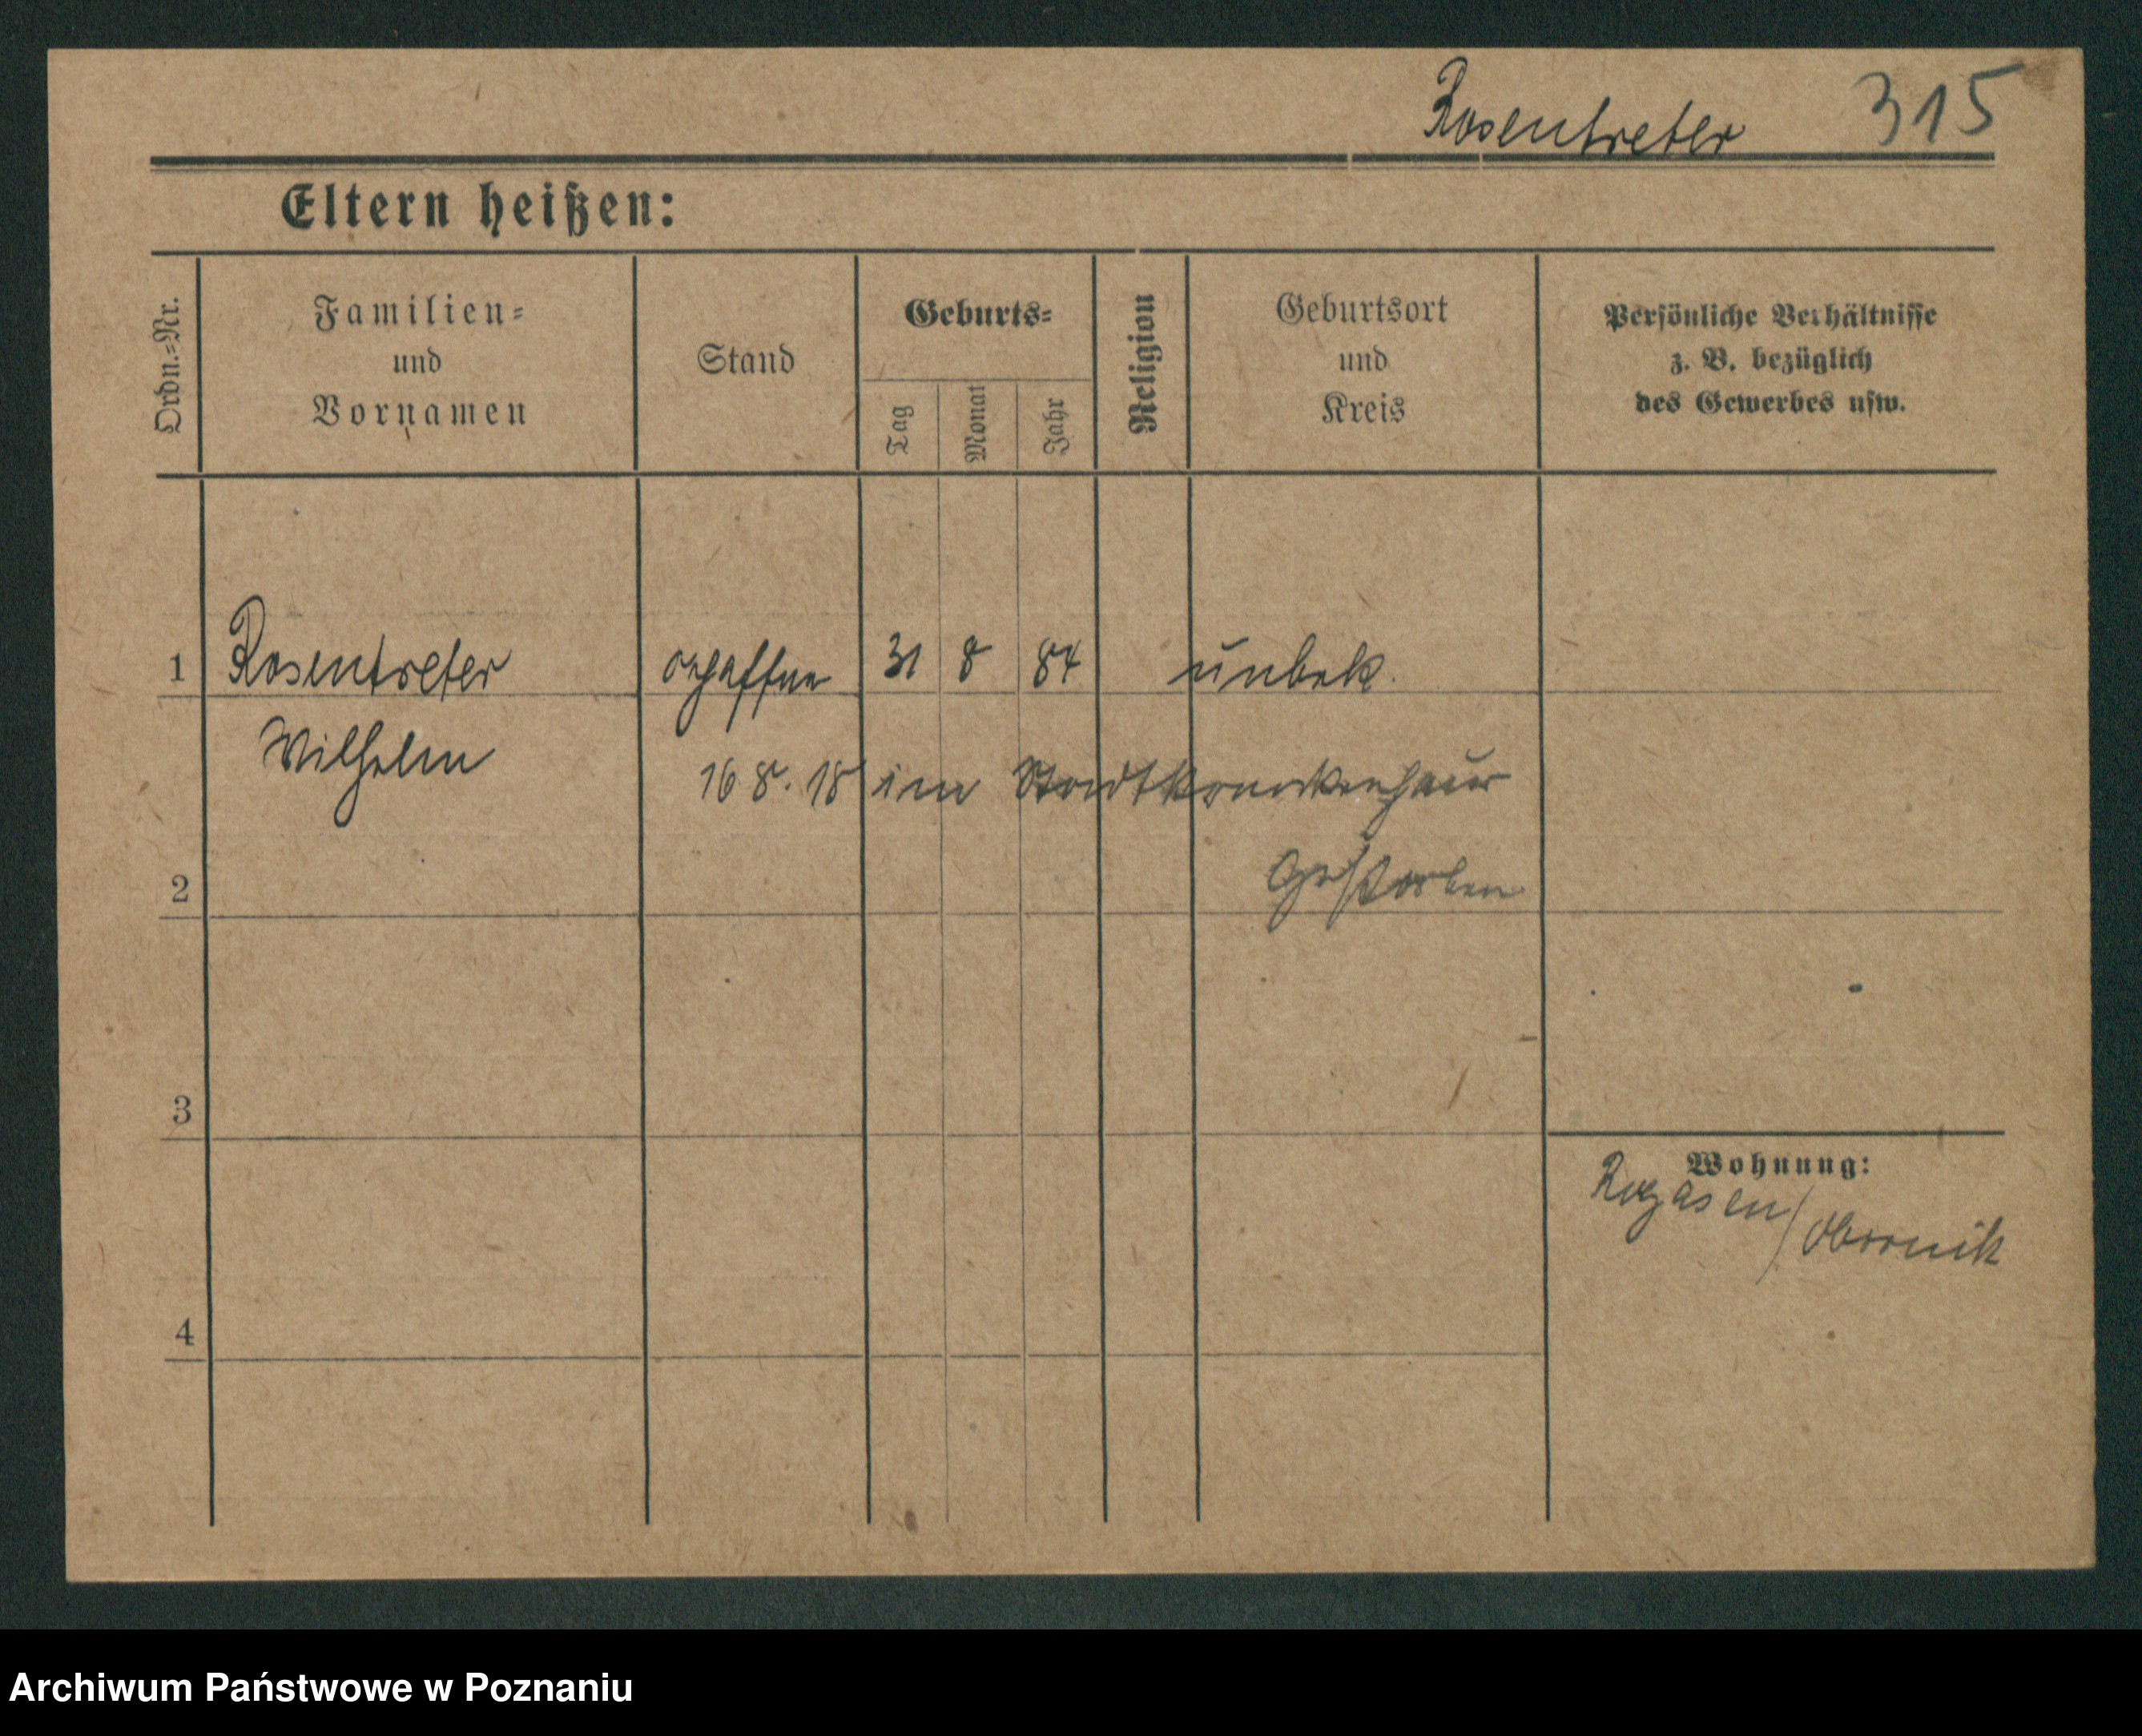 Rosentreter 315
Eltern heißen:
Ordn.=Nr.
Familien=
und
Vornamen
Stand
Geburts=
Tag
Monat
Jahr
Religion
Geburtsort
und
Kreis
Persönliche Verhältnisse
z. B. bezüglich
des Gewerbes usw.
1 Rosentreter 31 8 84 unbek.
Wilhelm
16 8. 18 im Stadtkrankenhaus
Gestorben
2
3
Wohnung:
Rogasen/Obornik
4
Archiwum Państwowe w Poznaniu